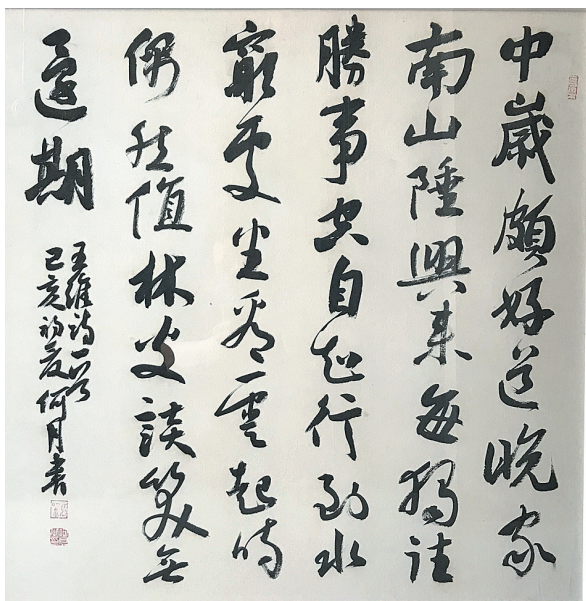 中歲頗好道晚家
南山陲興来每獨往
勝事空自知行到水
窮處坐看雲起時
偶然值林叟談笑無
還期
王維詩一首
己亥初夏何月書